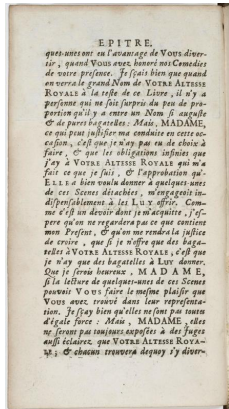 EPITRE.
ques-unes ont eu l'avantage de VOUS diver-
tir, quand VOUS avez honoré nos Comedies
de votre presence. Je sçais bien que quand
on verra le grand Nom de VOTRE ALTESSE
ROYALE à la teste de ce Livre, il n'y a
personne qui ne soit surpris du peu de pro-
portion qu'il y a entre un Nom si auguste
& de pures bagatelles: Mais, MADAME,
ce qui peut justifier ma conduite en cette oc-
casion, c'est que je n'ay pas eu de choix à
faire, & que les obligations infinies que
j'ay à VOTRE ALTESSE ROYALE qui m'a
fait ce que je suis, & l'approbation qu'-
ELLE a bien voulu donner à quelques-unes
de ces Scenes détachées, m'engageoit in-
dispensablement à les LUY offrir. Com-
me c'est un devoir dont je m'acquitte, j'es-
pere qu'on ne regardera pas ce que contient
mon Present, & qu'on me rendra la justice
de croire, que si je n'offre que des baga-
telles à VOTRE ALTESSE ROYALE, c'est que
je n'ay que des bagatelles à LUY donner.
Que je serois heureux, MADAME,
si la lecture de quelques-unes de ces Scenes
pouvoit VOUS faire le mesme plaisir que
VOUS avez trouvé dans leur representa-
tion. Je sçay bien qu'elles ne sont pas toutes
d'égale force: Mais, MADAME, elles
ne seront pas toujours exposées à des Juges
aussi éclairez que VOTRE ALTESSE ROYA-
LE; & chacun trouvera dequoy s'y diver-